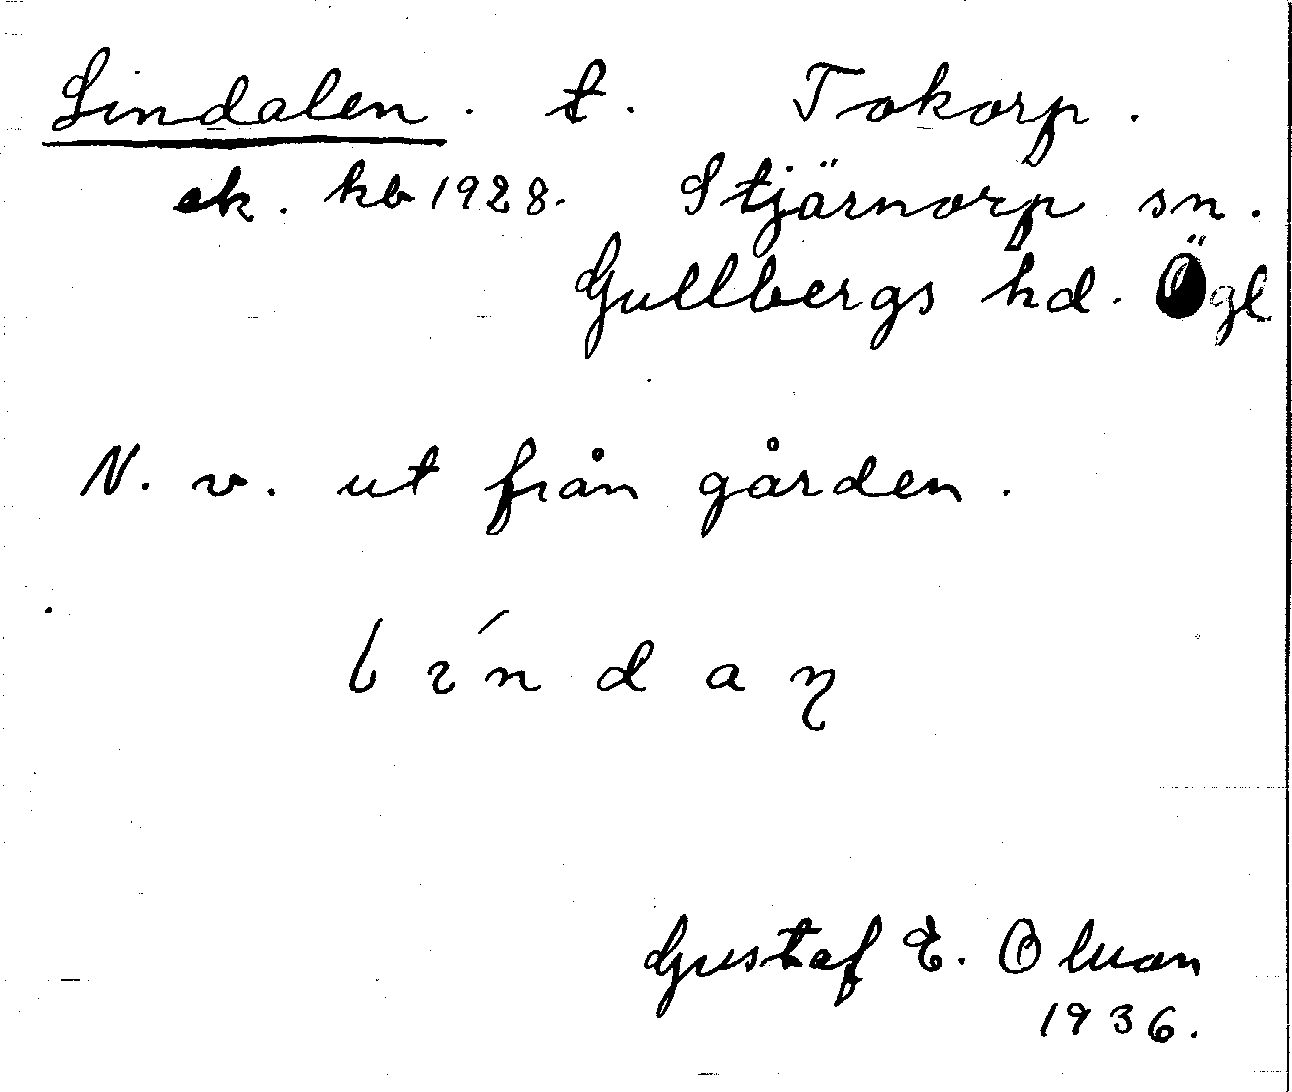 Lindalen. t. Tokorp.
ek. kb 1928. Stjärnorp sn.
Gullbergs hd. Ögl
N. v. ut från gården.
lɩ́ndaɳ
Gustaf E. Olson
1936.